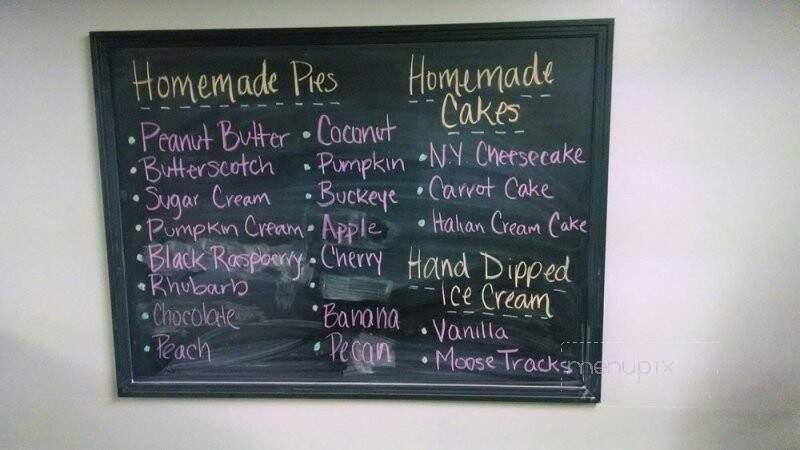 Homemade Pies
• Peanut Butter
• Butterscotch
• Sugar Cream
• Pumpkin Cream
• Black Raspberry
• Rhubarb
• Chocolate
• Peach
• Coconut
• Pumpkin
• Buckeye
• Apple
• Cherry
•
• Banana
• Pecan
Homemade
Cakes
• N.Y. Cheesecake
• Carrot Cake
• Italian Cream Cake
Hand Dipped
Ice Cream
• Vanilla
• Moose Tracks
menupix